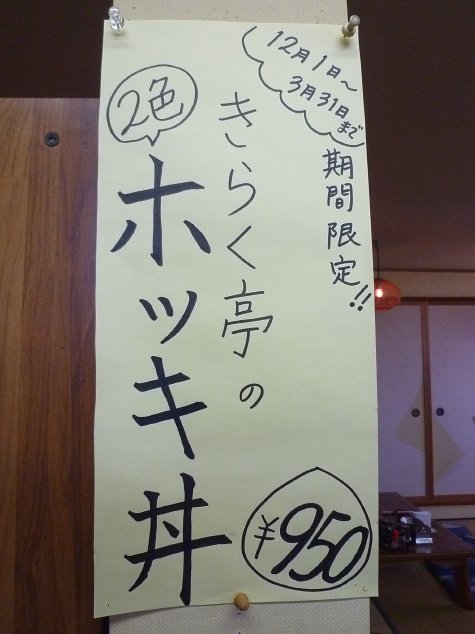 12月1日〜
3月31日まで
期間限定!!
きらく亭の
2色
ホッキ丼
¥950